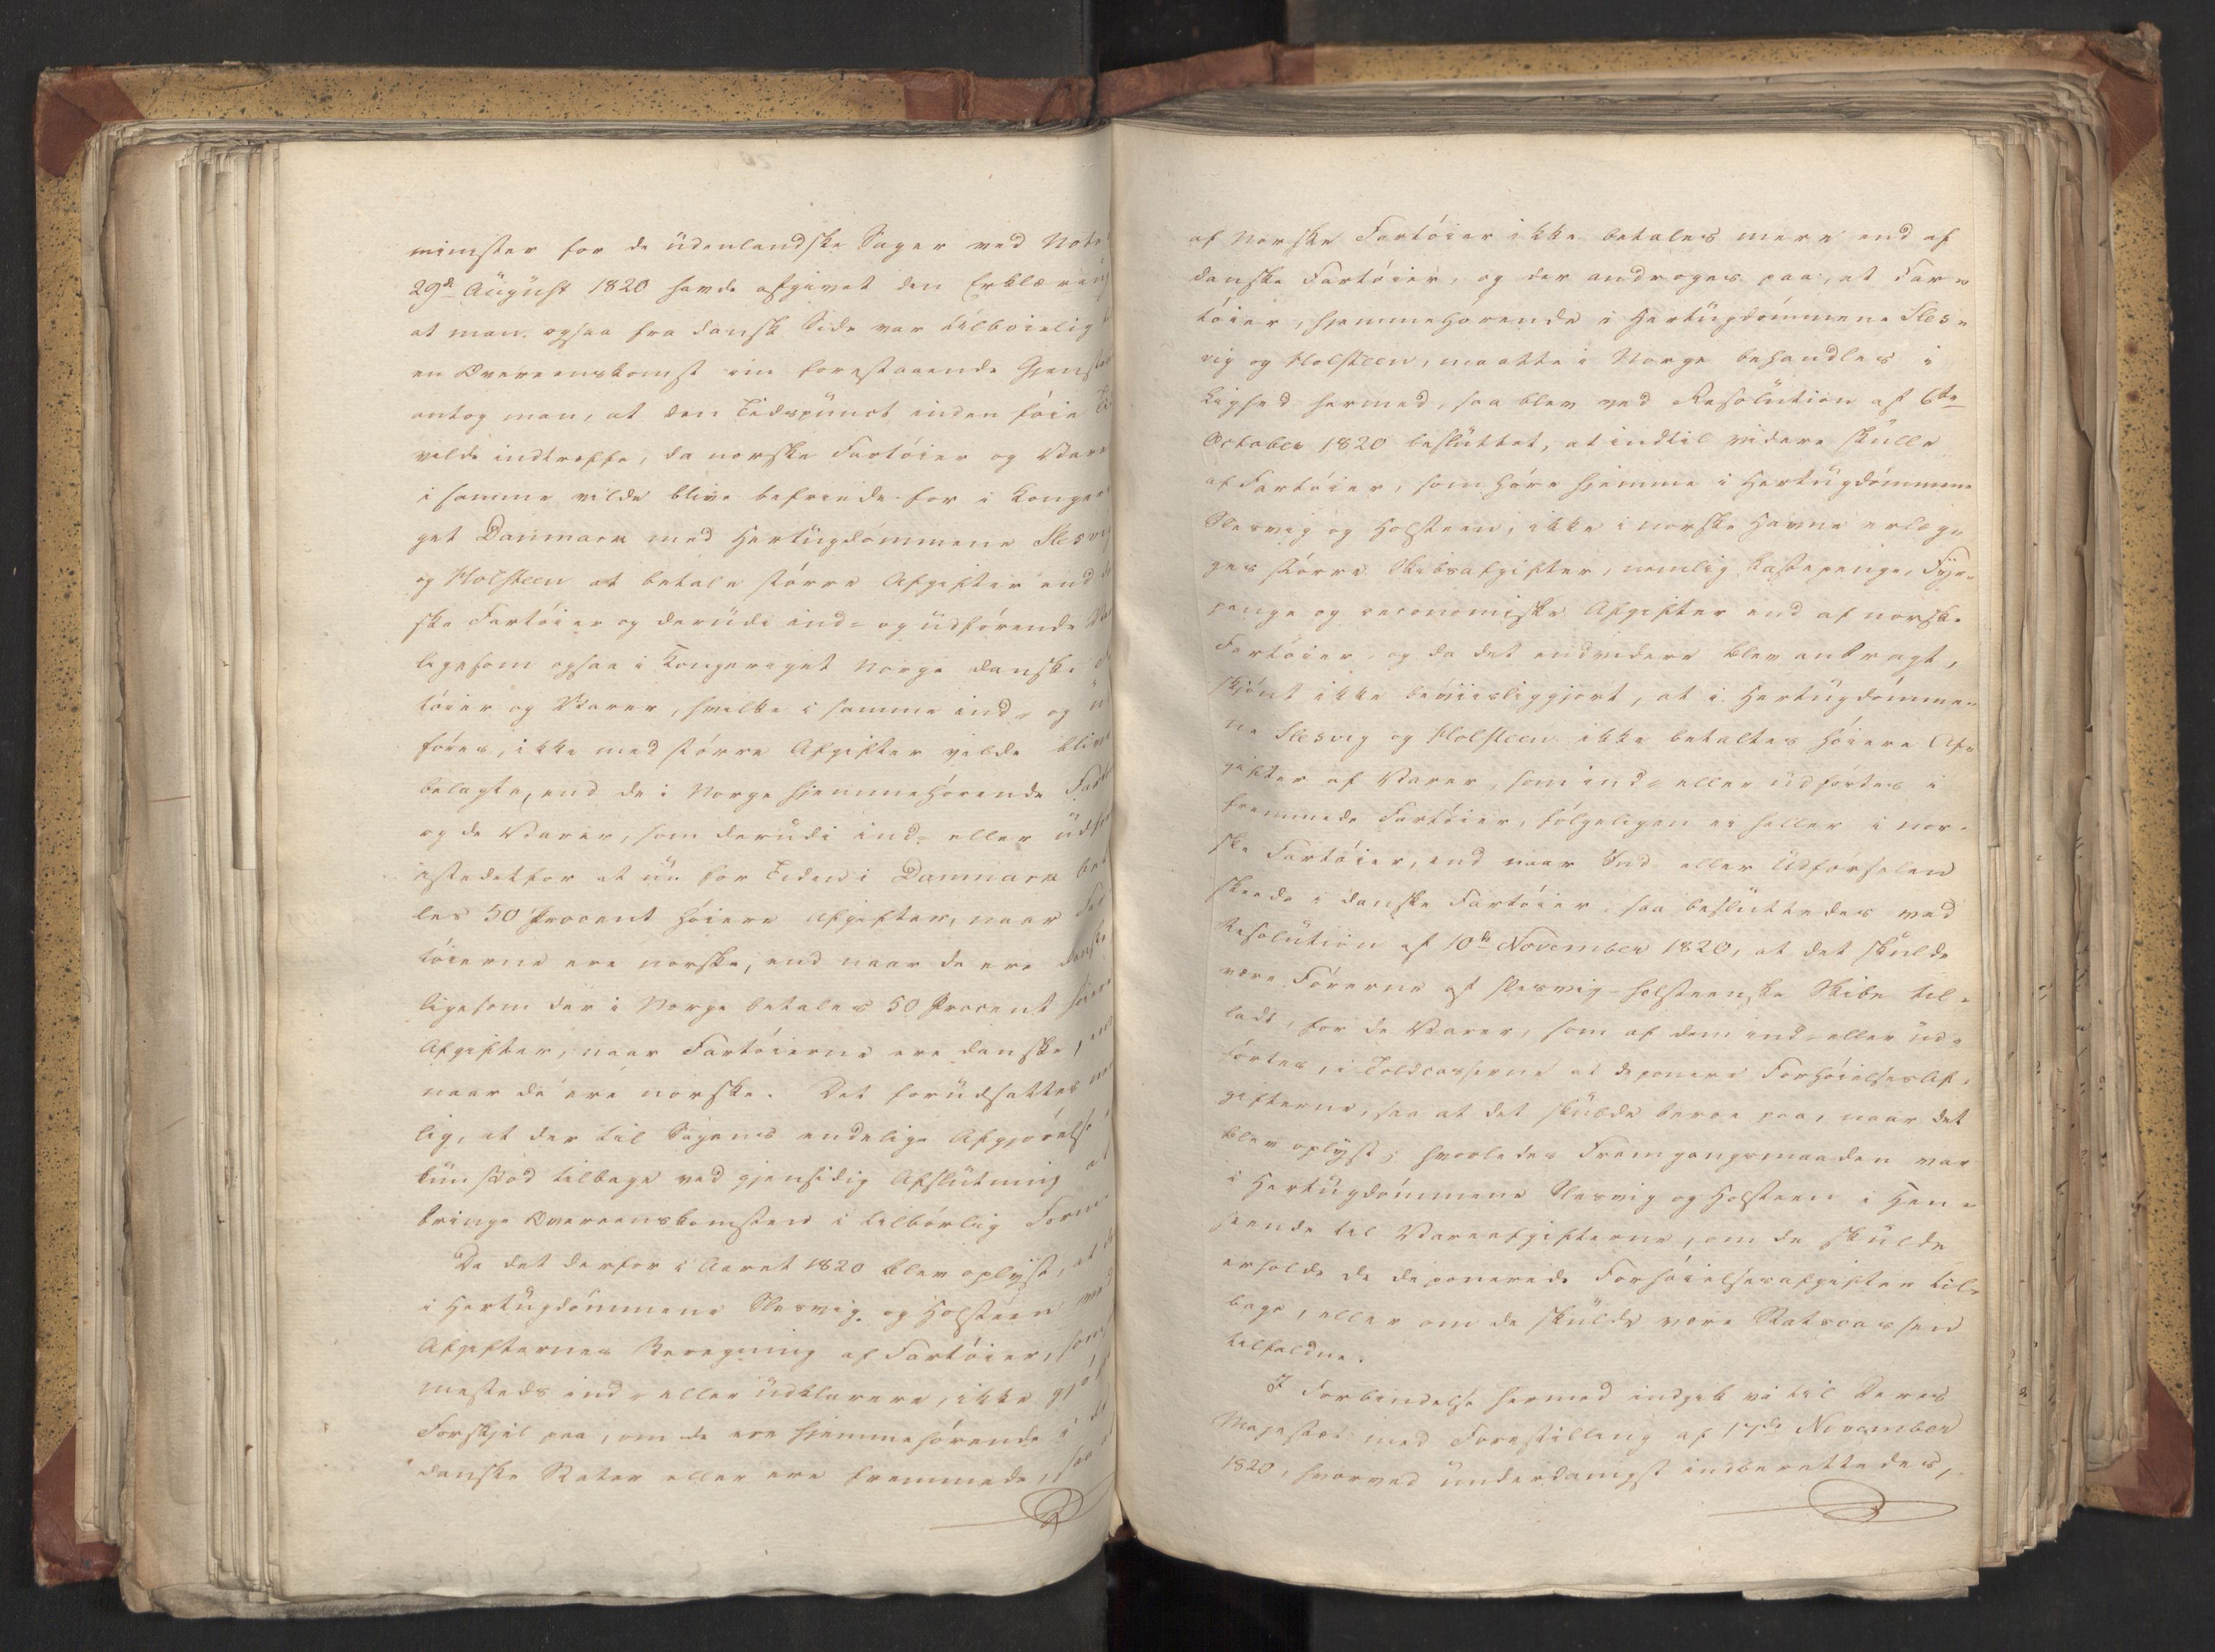 minister for de udenlandske Sager ved Note
29de August 1820 havde afgivet den Erklæring
at man ogsaa fra dansk Side var tilbøielig
en Overeenskomst om forestaaende Gjenst
antog man, at den Tidspunct inden føie Ti
vilde indtræffe, da norske Fartøier og Vare
i samme vilde blive befriede for i Konge
get Danmark med Hertugdømmene Slesvig
og Holsteen at betale større Afgifter end
ske Fartøier og derudi ind- og udførende
ligesom ogsaa i Kongeriget Norge danske
tøier og Varer, hvilke i samme ind- og
føres, ikke med større Afgifter vilde blive
belagte, end de i Norge hjemmehørende Fart
og de Varer, som derudi ind- eller udfø
istedetfor at nu for Tiden i Danmark beta
les 50 Procent høiere Afgifter, naar Far
tøierne ere norske, end naar de ere danske
ligesom der i Norge betales 50 Procent høiere
Afgifter, naar Fartøierne ere danske, end
naar de ere norske. Det forudsattes nem
lig, at der til Sagens endelige Afgjørelse
kun stod tilbage ved gjensidig Afslutning at
bringe Overeenskomsten i tilbørlig Form
Da det derfor i Aaret 1820 blev oplyst, at
i Hertugdømmene Slesvig og Holsteen ved
Afgifternes Beregning af Fartøier, som
mesteds ind- eller udklarere, ikke gjø
Forskjel paa, om de ere hjemmehørende i de
danske Stater eller ere fremmede, saa at
af Norske Fartøier ikke betales mere end af
danske Fartøier, og der androges paa, at Far-
tøier, hjemmehørende i Hertugdømmene Sles-
vig og Holsteen, maatte i Norge behandles i
Lighed hermed, saa blev ved Resolution af 6te
October 1820 besluttet, at indtil videre skulle
af Fartøier, som høre hjemme i Hertugdømmene
Slesvig og Holsteen, ikke i norske Havne erlæg-
ges større Skibsafgifter, nemlig Lastepenge, Fyr-
penge og oeconomiske Afgifter end af norske
Fartøier, og da det endvidere blev anbragt,
skjønt ikke beviisliggjort, at i Hertugdømme-
ne Slesvig og Holsteen ikke betaltes høiere Af-
gifter af Varer, som ind- eller udførtes i
fremmede Fartøier, følgeligen ei heller i nor-
ske Fartøier, end naar Ind- eller Udførselen
skeede i danske Fartøier, saa besluttedes ved
Resolution af 10de November 1820, at det skulde
være Førerne af slesvig-holsteenske Skibe til-
ladt, for de Varer, som af dem ind- eller ud-
førtes, i Toldcasserne at deponere Forhøielsesaf-
gifterne, saa at det skulde beroe paa, naar det
blev oplyst, hvorledes Fremgangsmaaden var
i Hertugdømmene Slesvig og Holsteen i Hen-
seende til Vareafgifterne, om de skulde
erholde de deponerede Forhøielsesafgifter til-
bage, eller om de skulde være Statscassen
tilfaldne.
I Forbindelse hermed indgik vi til Deres
Majestæt med Forestilling af 17de November
1820, hvorved underdanigst indberettedes,